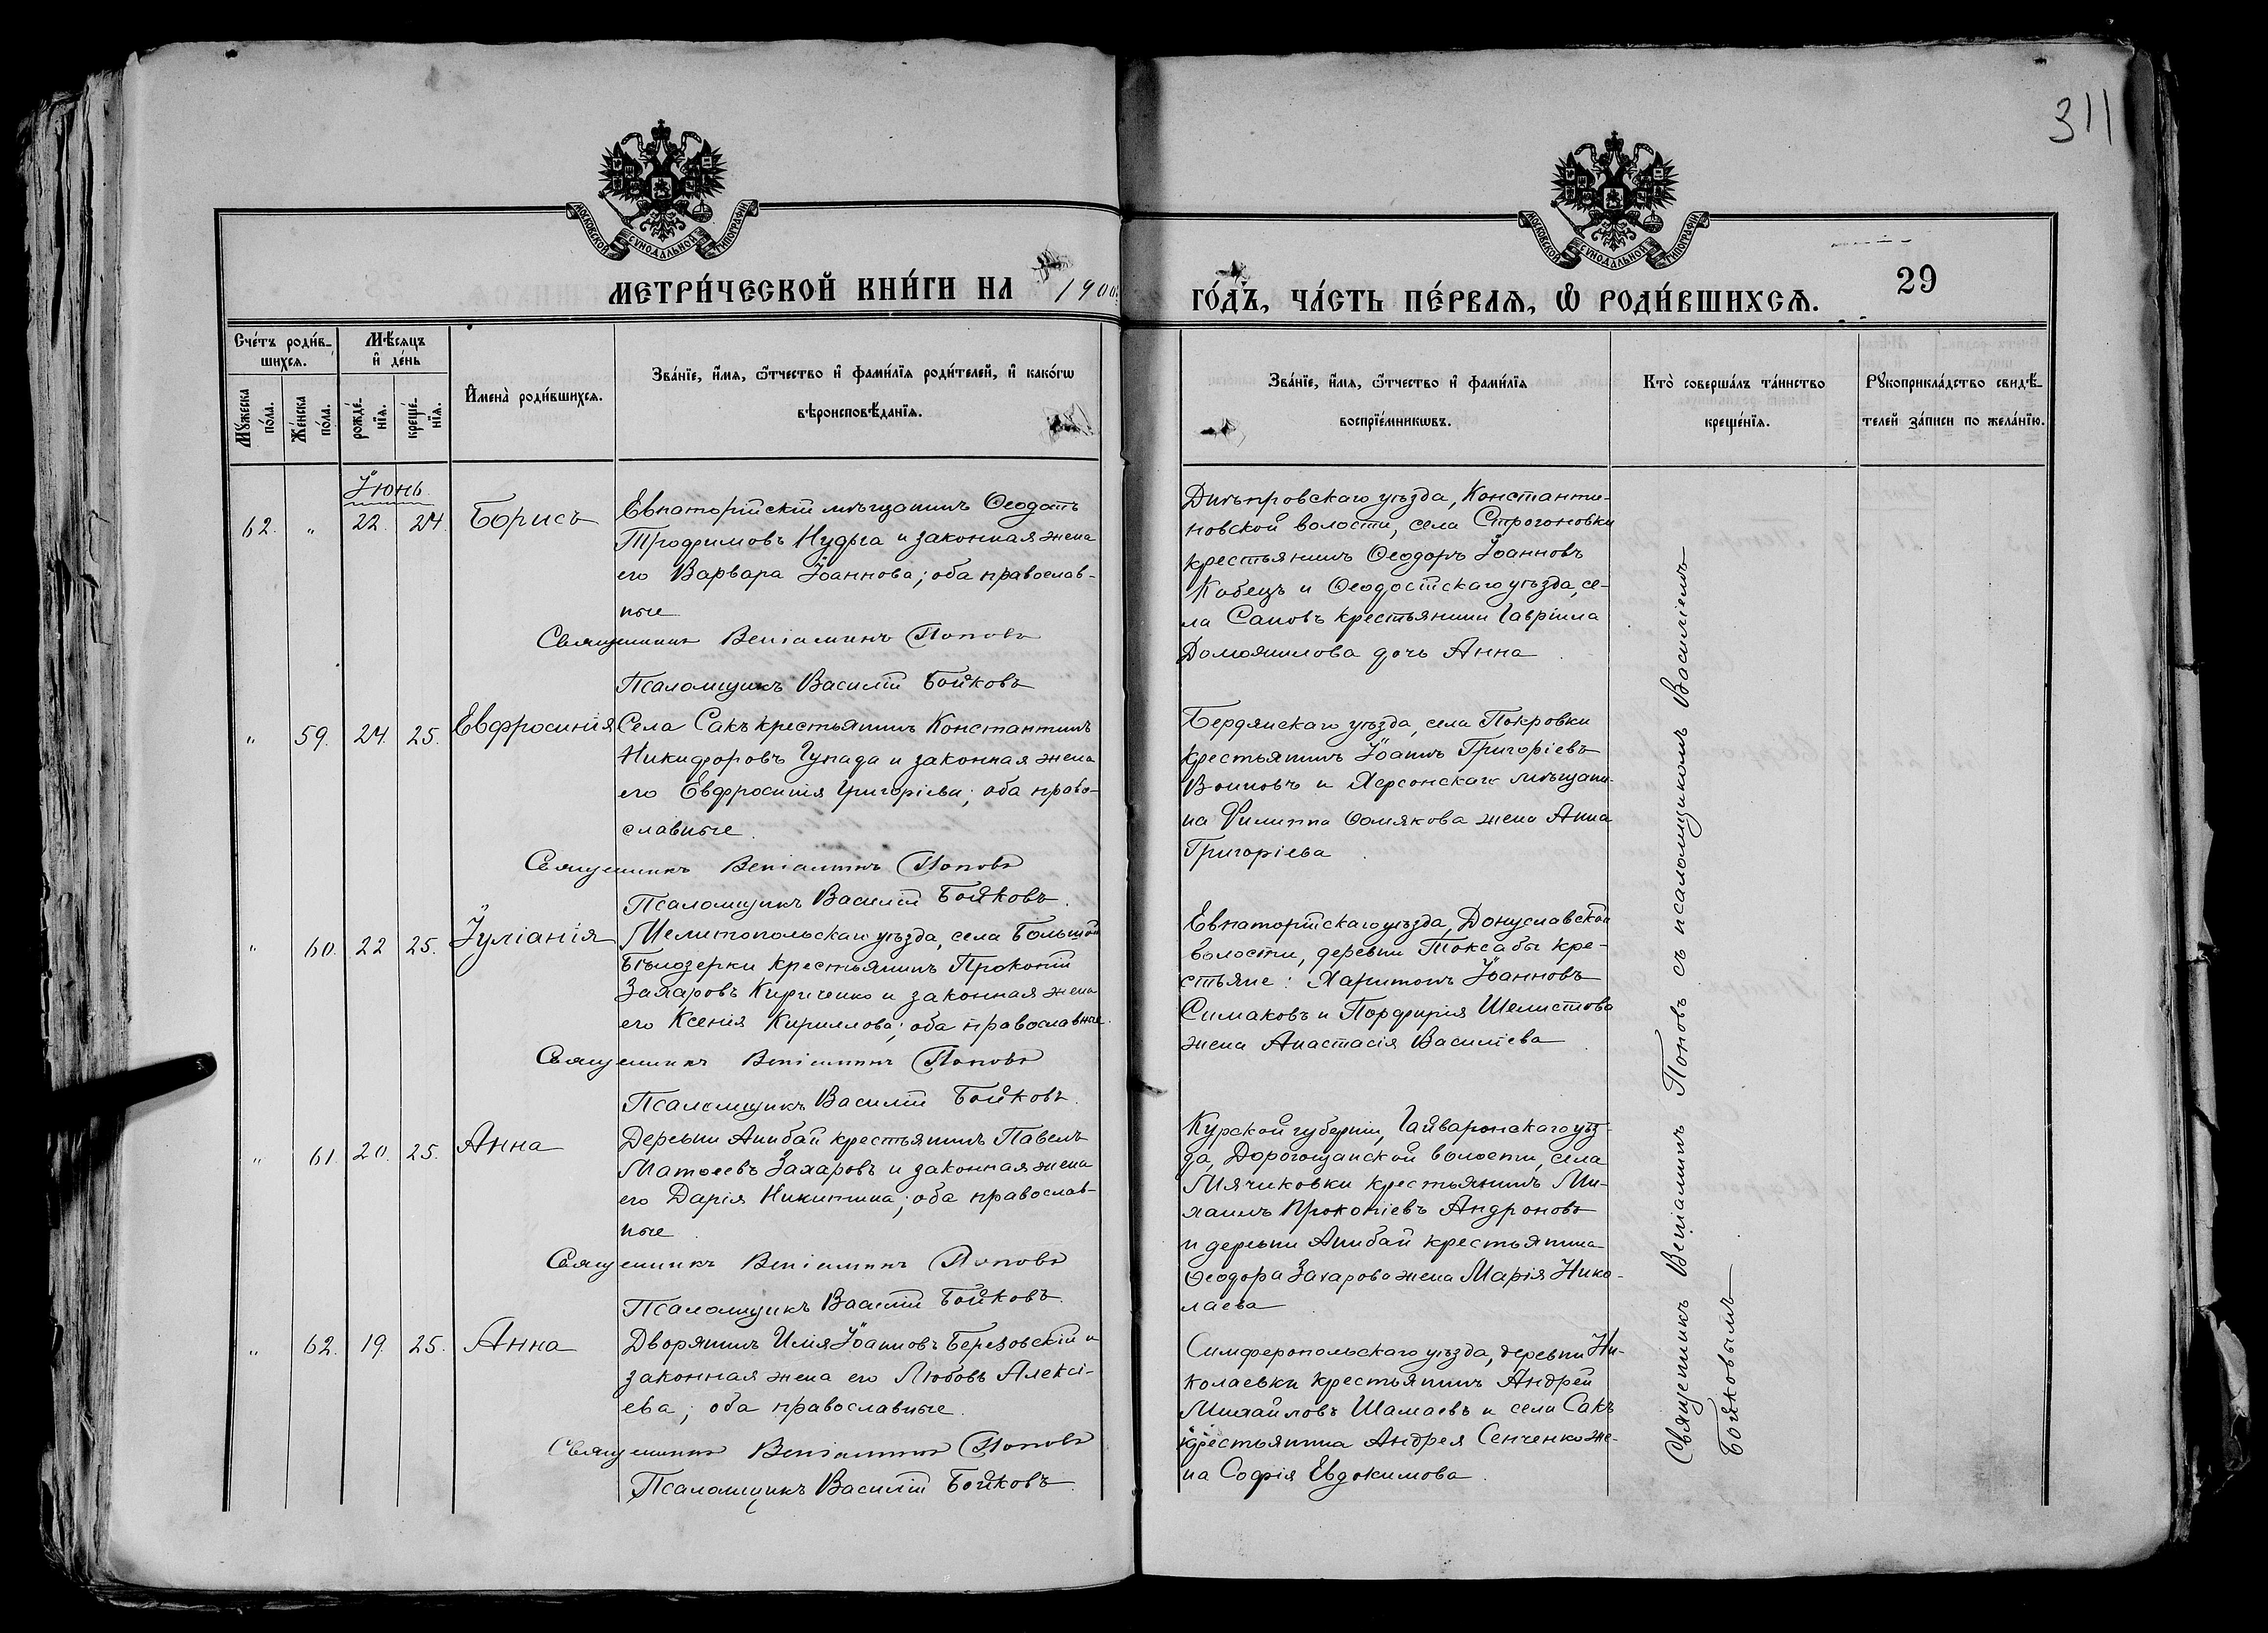 311
МОСКОВСКОЙ СУНОДАЛЬНОЙ ТИПОГРАФІИ
МОСКОВСКОЙ СУНОДАЛЬНОЙ ТИПОГРАФІИ
МЕТРИ́ЧЕСКОЙ КНИ́ГИ НА 1900
ГО́ДЪ, ЧА́СТЬ ПЕ́РВАЯ, Ѡ РОДИ́ВШИХСЯ.
29
Сче́тъ роди́в-
шихся.
Мѣ́сяцъ
и҆ де́нь
Мꙋ́жеска
по́ла.
Же́нска
по́ла.
рожде́-
нїѧ.
креще́-
нїѧ.
И҆мена̀ роди́вшихся.
Зва́нїе, и҆́мѧ, ѻ҆́тчество и҆ фами́лїѧ роди́телей, и҆ како́гѡ
вѣроисповѣ́данїѧ.
Зва́нїе, и҆́мѧ, ѻ҆́тчество и҆ фами́лїѧ
воспрїе́мникѡвъ.
Кто̀ соверша́лъ та́инство
креще́нїѧ.
Рꙋкоприкла́дство свидѣ́-
телей за́писи по жела́нїю.
Іюнь
62. " 22. 24. Борисъ
Евпаторійскій мѣщанинъ Ѳеодотъ
Трофимовъ Нудьга и законная жена
его Варвара Іоаннова; оба православ-
ные
Священникъ Веніаминъ Поповъ
Псаломщикъ Василій Бойковъ
Днѣпровскаго уѣзда, Константи-
новской волости, села Строгоновки
крестьянинъ Ѳеодоръ Іоанновъ
Кобецъ и Ѳеодосійскаго уѣзда, се-
ла Саловъ крестьянина Гавріила
Домоянилова дочь Анна
" 59. 24. 25. Евфросинія
Села Сакъ крестьянинъ Константинъ
Никифоровъ Гунада и законная жена
его Евфросинія Григоріева; оба право-
славные.
Священникъ Веніаминъ Поповъ
Псаломщикъ Василій Бойковъ.
Бердянскаго уѣзда, села Покровки
крестьянинъ Іоаннъ Григоріевъ
Воиновъ и Херсонскаго мѣщани-
на Филиппа Ѳомякова жена Анна
Григоріева
" 60. 22 25. Іуліанія
Мелитопольскаго уѣзда, села Большой
Бѣлозерки крестьянинъ Прокопій
Захаровъ Кириченко и законная жена
его Ксенія Кириллова; оба православные.
Священникъ Веніаминъ Поповъ
Псаломщикъ Василій Бойковъ.
Евпаторійскаго уѣзда, Донуславской
волости, деревни Токсабы кре-
стьяне: Харитонъ Іоанновъ
Симаковъ и Порфирія Шелистова
жена Анастасія Василіева
" 61. 20. 25. Анна
Деревни Ашбай крестьянинъ Павелъ
Матѳеевъ Захаровъ и законная жена
его Дарія Никитина; оба православ-
ные
Священникъ Веніаминъ Поповъ
Псаломщикъ Василій Бойковъ.
Курской губерніи, Гайваронскаго уѣз-
да, Дорогощанской волости, села
Мячиковки крестьянинъ Ми-
хаилъ Прокопіевъ Андроновъ
и деревни Ашбай крестьянина
Ѳеодора Захарова жена Марія Нико-
лаева
" 62. 19. 25. Анна
Дворянинъ Илія Іоанновъ Березовскій и
законная жена его Любовь Алексі-
ева; оба православные.
Священникъ Веніаминъ Поповъ
Псаломщикъ Василій Бойковъ.
Симферопольскаго уѣзда, деревни Ни-
колаевки крестьянинъ Андрей
Михайловъ Шамаевъ и села Сакъ
крестьянина Андрея Сенченко же-
на Софія Евдокимова.
Священникъ Веніаминъ Поповъ съ псаломщикомъ Василіемъ
Бойковымъ